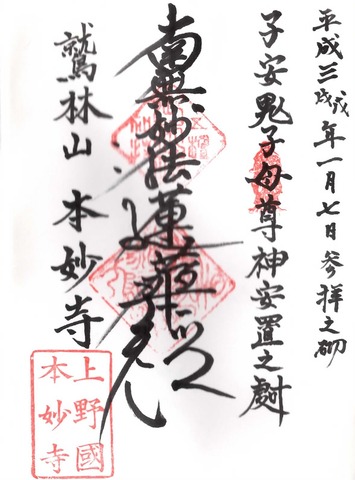 平成三戊戌年一月七日参拝之砌
子安鬼子母尊神安置之
南無妙法蓮華経
鷲林山 本妙寺
上野國
本妙寺